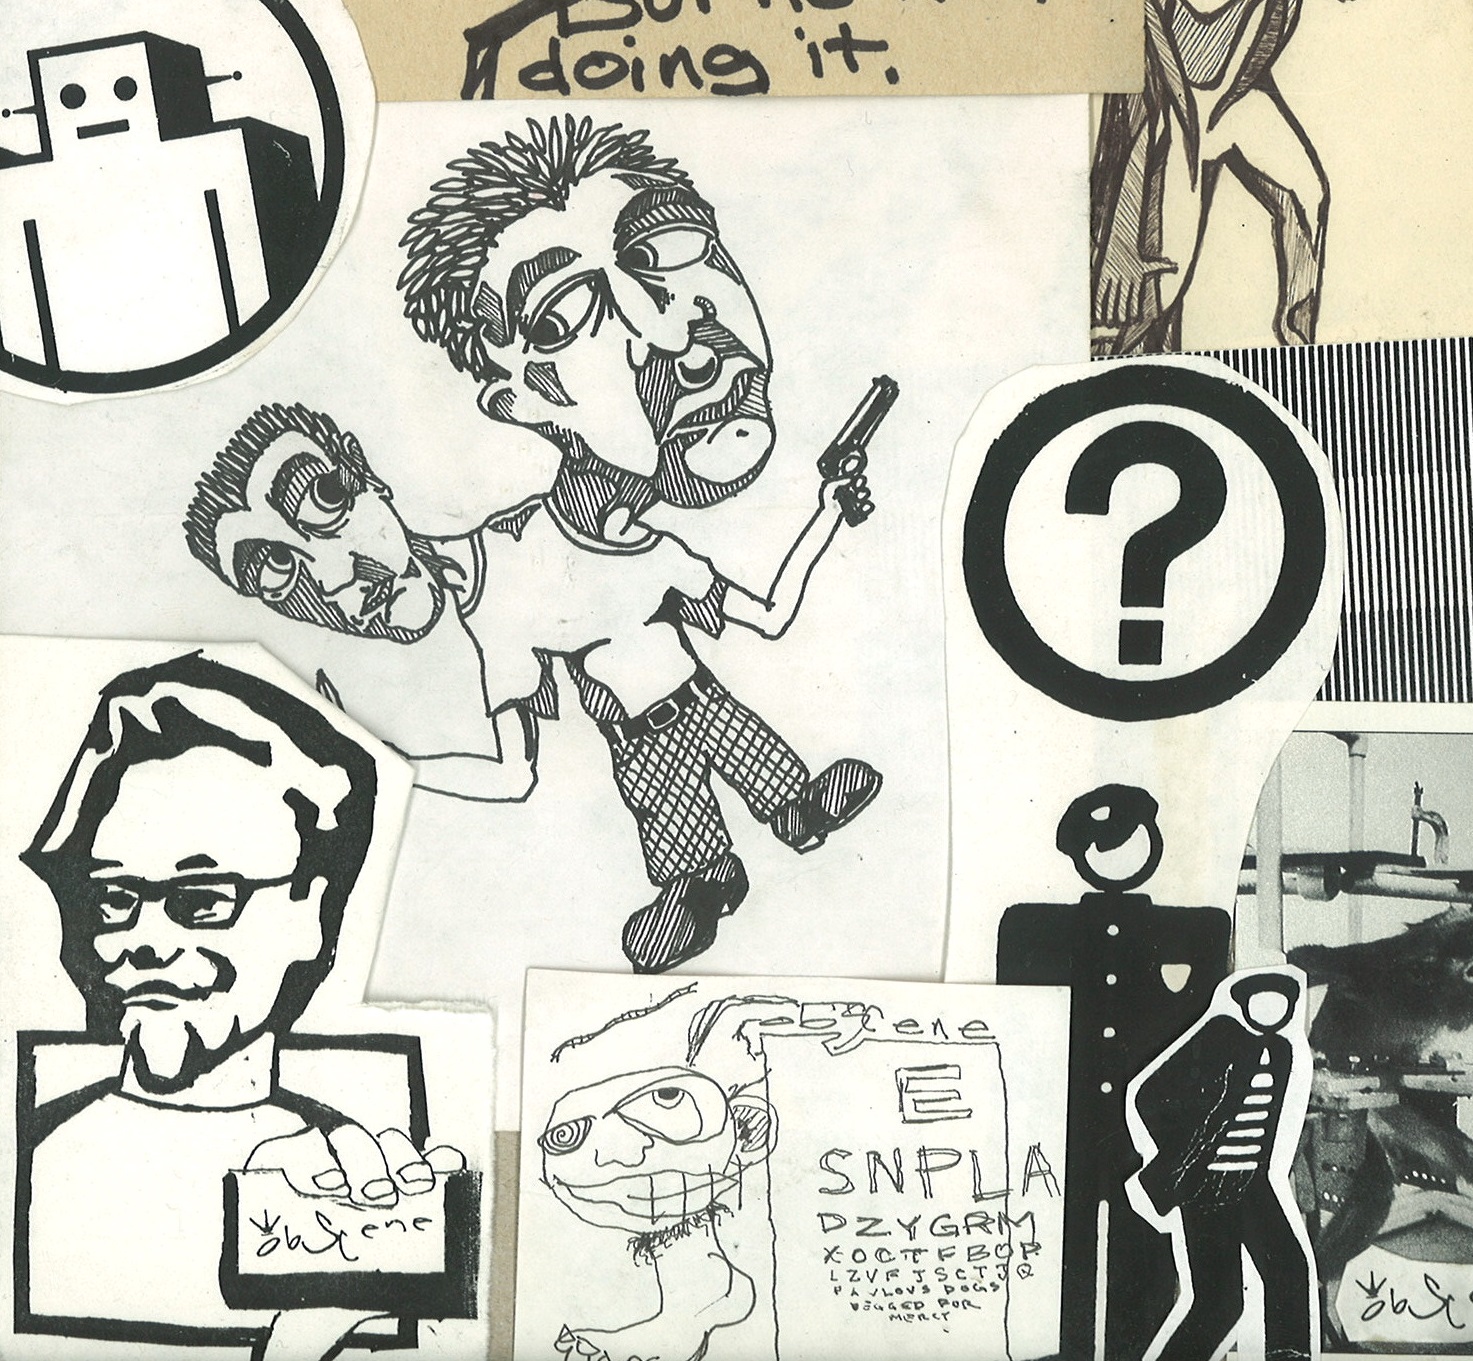 doing it.
?
obScene
E
SNPLA
DZYGRM
XOCTFBOP
LZVFJSCTJQ
PAVLOVS DOGS
BEGGED FOR
MERCY
obScene